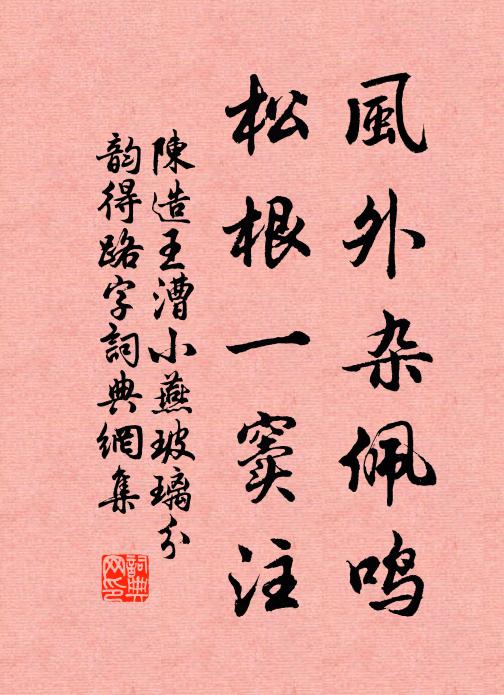 風外杂佩鸣
松根一窦注
陳造王漕小燕玻璃分
韵得路字詞典網集
詞典网印